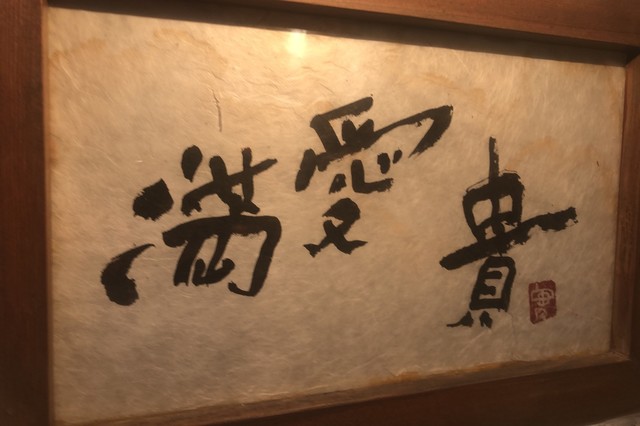 満愛貴